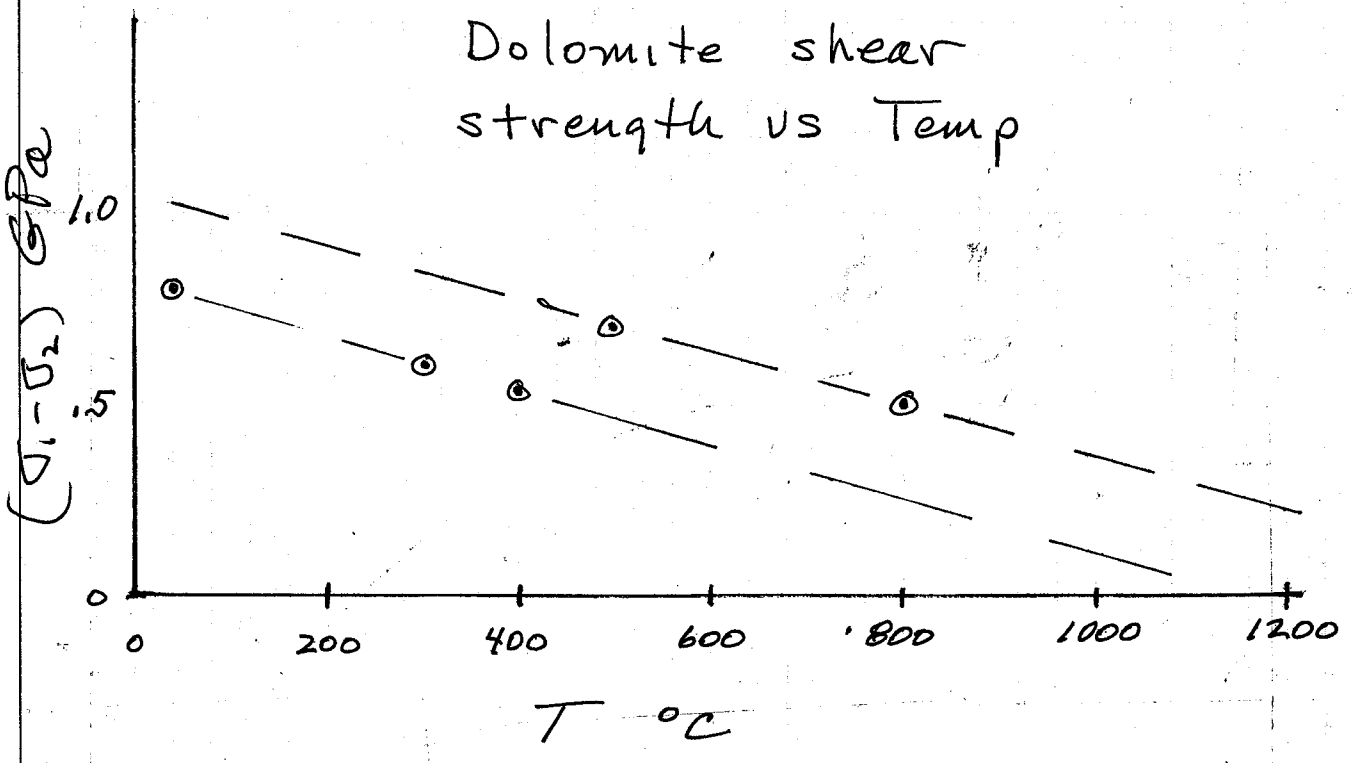 Dolomite shear
strength vs Temp
(σ₁-σ₂) GPa
1.0
.5
0
0 200 400 600 800 1000 1200
T °C